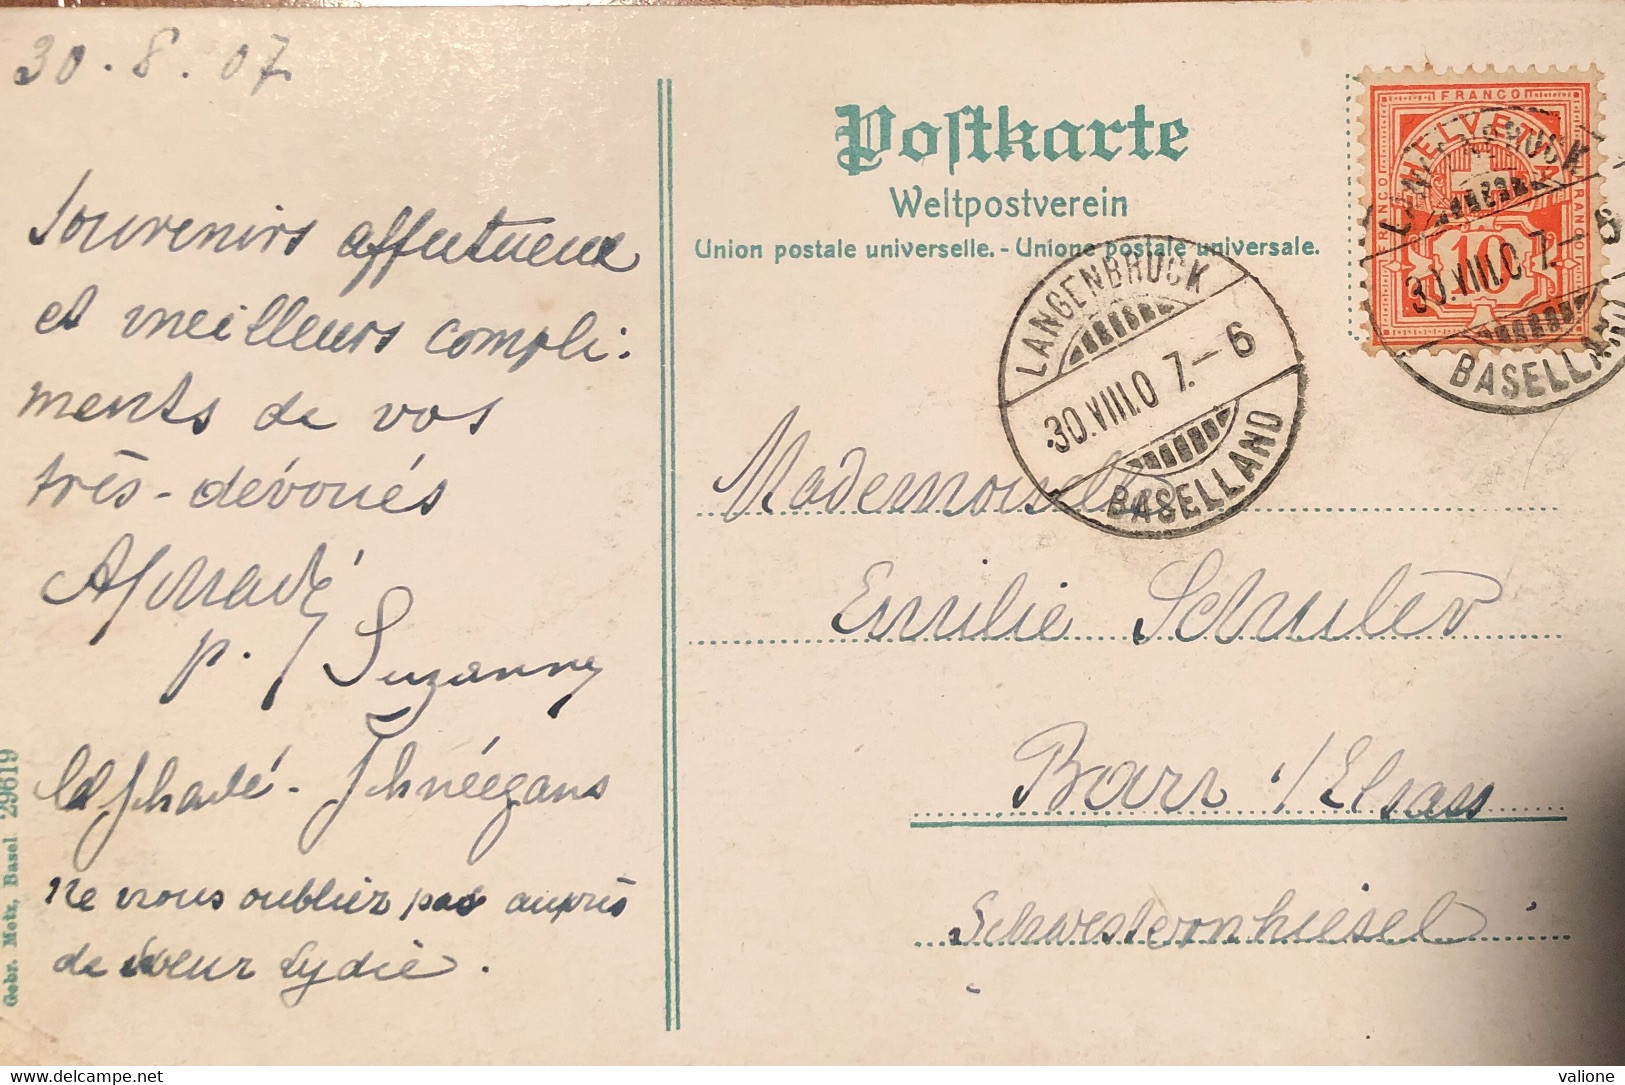 30.8.07.
Souvenirs affectueux
et meilleurs compli-
ments de vos
très-dévoués
p. Suzanne
Schnéegans
Ne nous oubliez pas auprès
de soeur Lydie.
Gebr. Metz, Basel 29619
Postkarte
Weltpostverein
Union postale universelle. - Unione postale universale.
FRANCO
FRANCO
FRANCO
HELVETIA
10
LANGENBRUCK
30.VIII.07.-6
BASELLAND
LANGENBRUCK
30.VIII.07.-6
BASELLAND
Mademoiselle
Emilie Schuler
Barr i/Elsass
valione